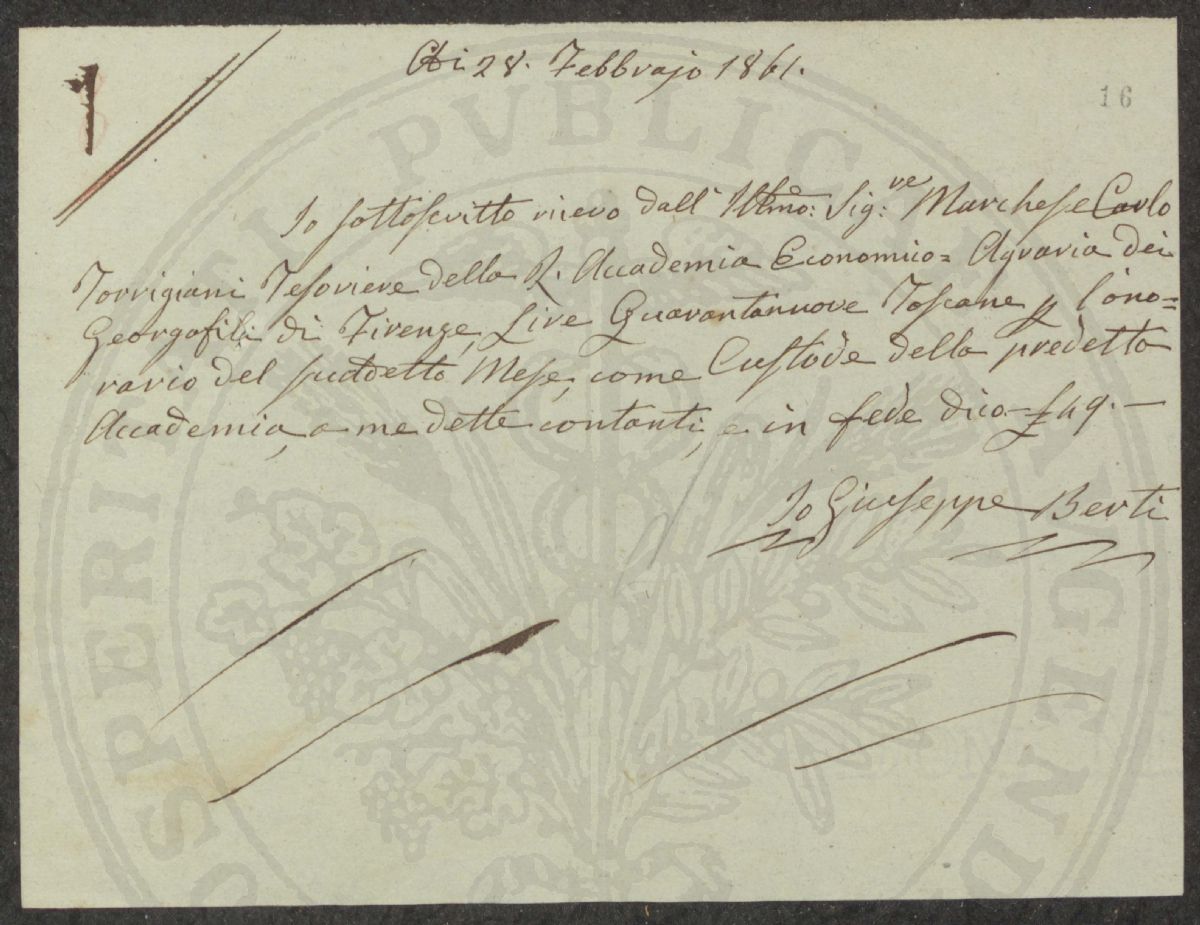 Adi 28. Febbrajo 1861.
1
16
Io sottoscritto ricevo dall' Illmo: Sig:re Marchese Carlo
Torrigiani Tesoriere della R. Accademia Economico= Agraria dei
Georgofili di Firenze, Lire Quarantanuove Toscane p l'ono=
rario del suddetto Mese, come Custode della predetta
Accademia, a me dette contanti, e in fede dico £ 49. —
Io Giuseppe Berti
PROSPERITATI PUBLICAE AUGENDAE